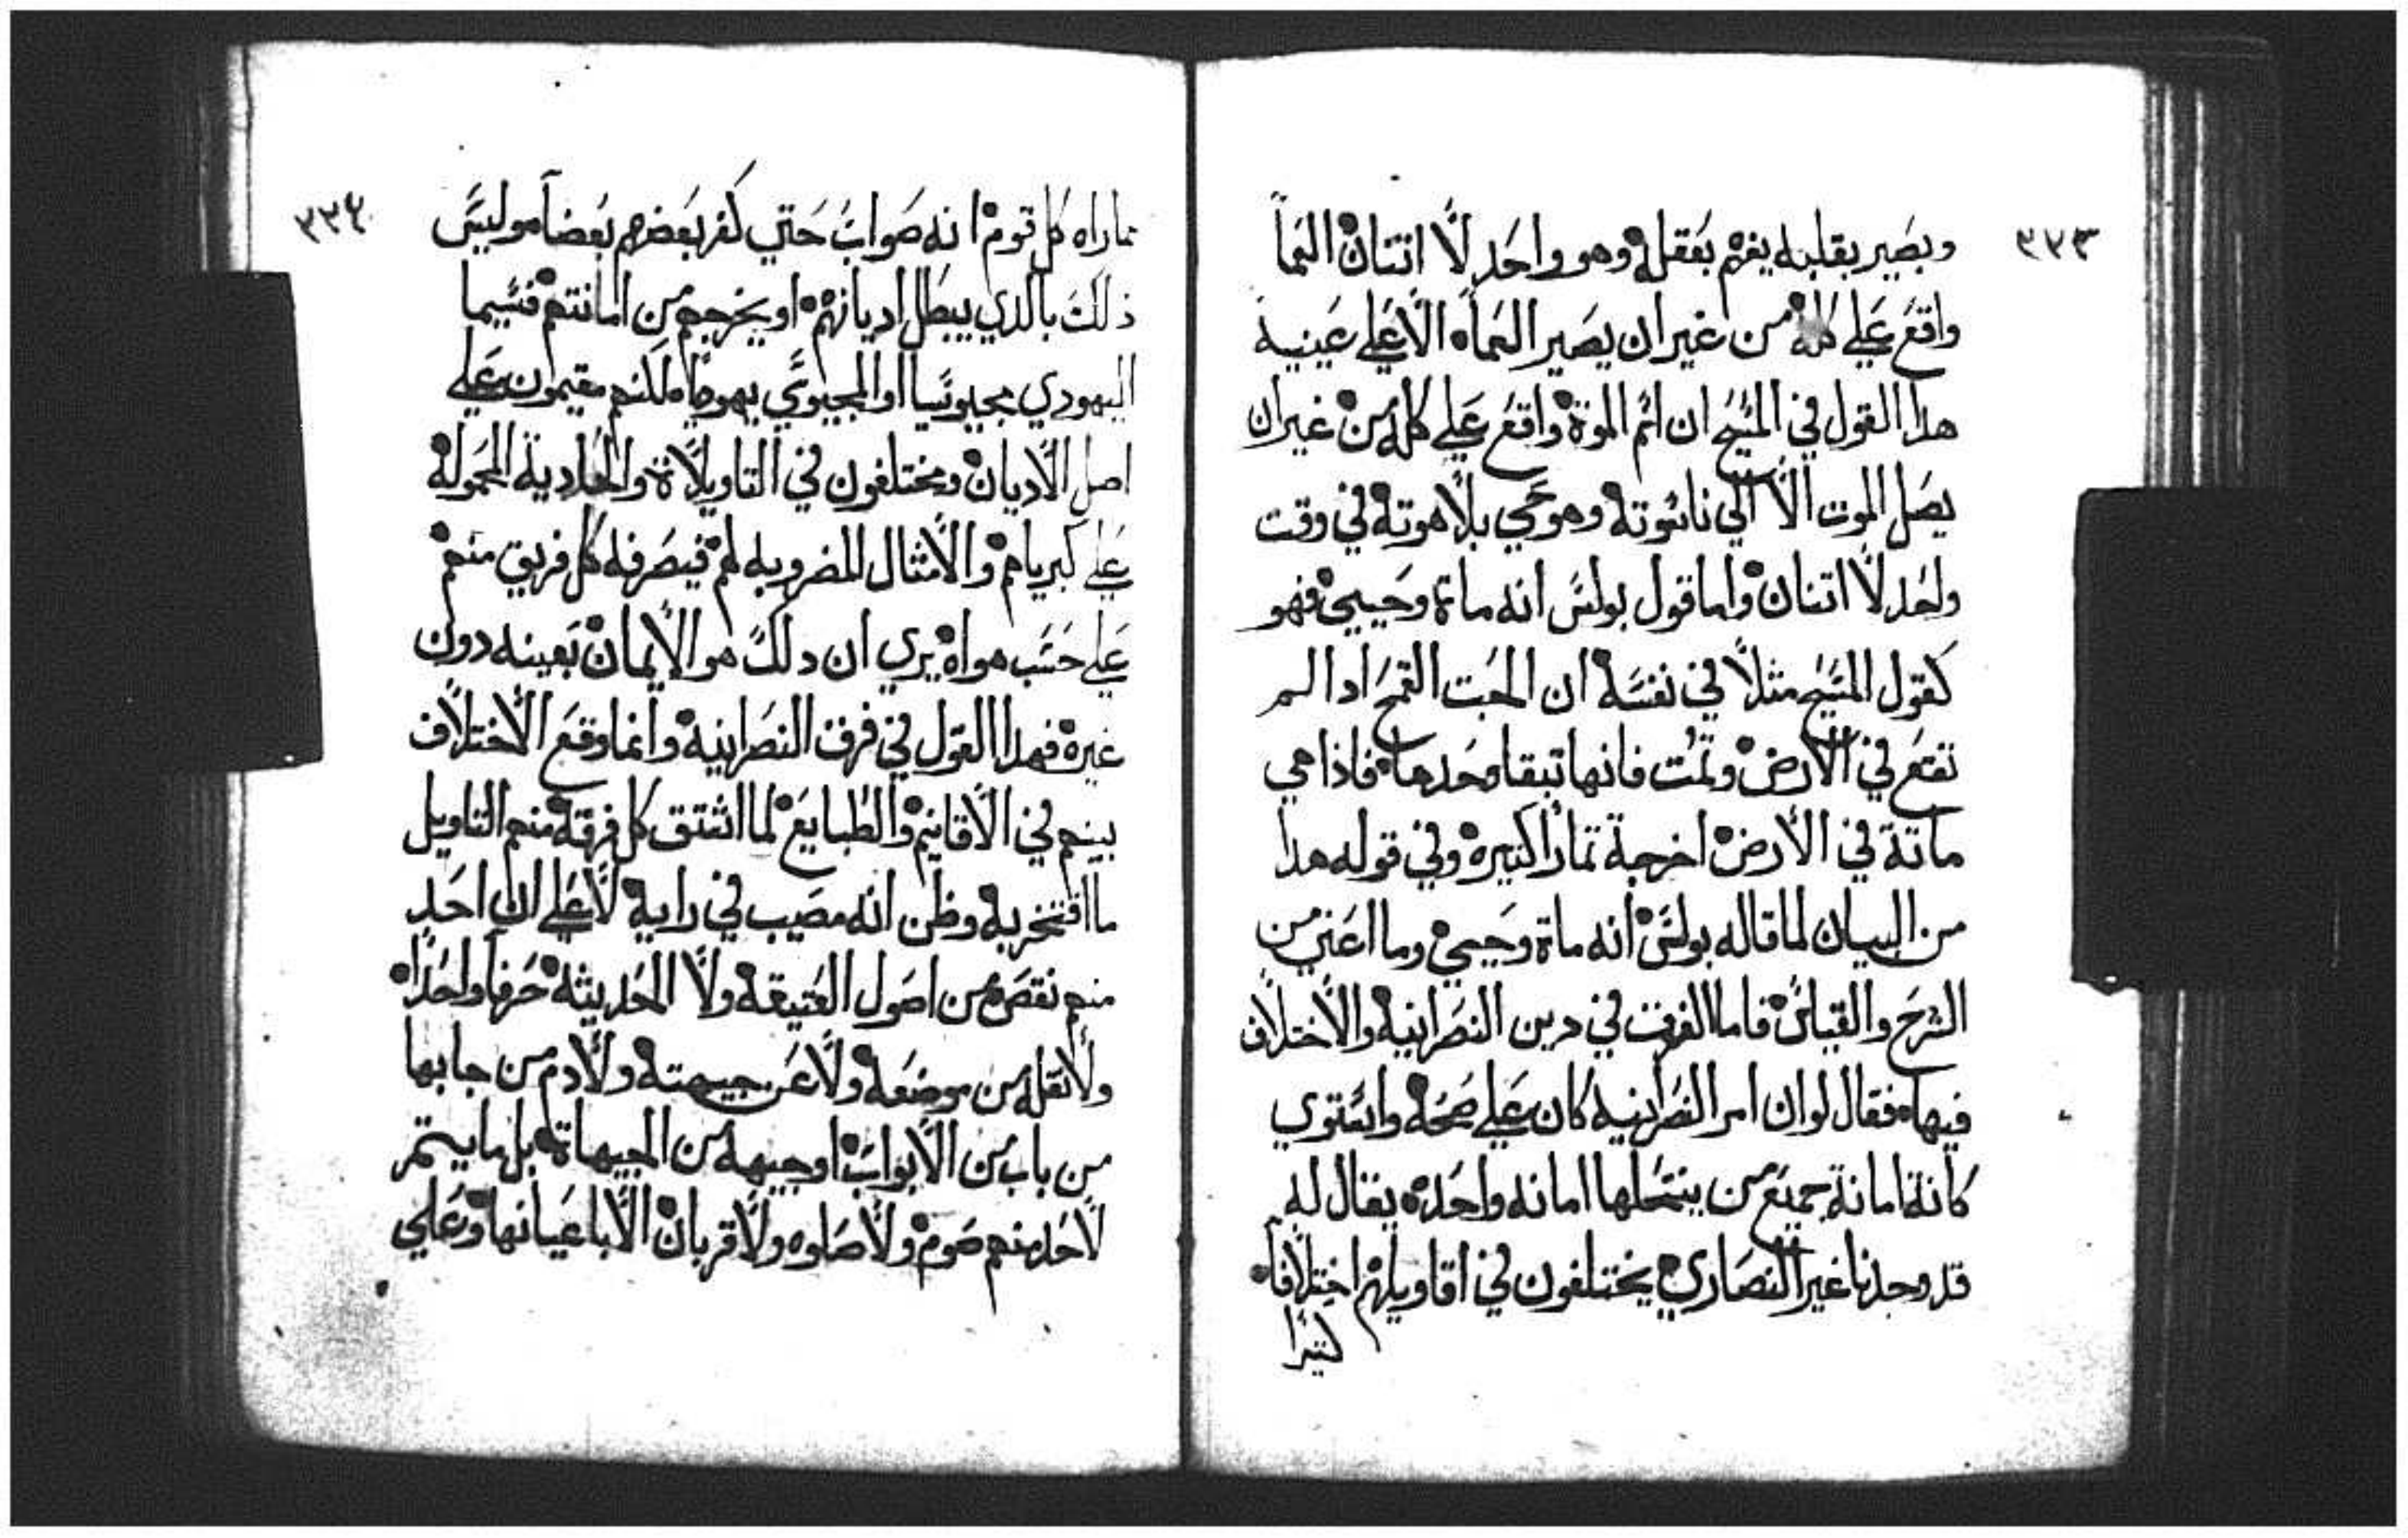 ٣٣٣
وبصير بقلبه يفهم بعقله وهو واحد لا اتنان العما
واقع علي كله من غير ان يصير العماه الا علي عينيه
هدا القول في المسيح ان اسم الموة واقع علي كله من غير ان
يصل الموت الا الي ناسوته وهو حي بلاهوته في وقت
واحد لا اتنان واما قول بولس انه ماة وحيي فهو
كقول المسيح مثلا في نفسه ان الحبت القمح ادا لم
تقع في الارض وتمت فانها تبقا وحدها فاذا هي
ماتة في الارض اخرجة تمارا كتيره وفي قوله هدا
من البيان لما قاله بولس انه ماة وحيي وما اغني من
الشرح والقياس فاما الفرقت في دين النصرانيه والاختلاف
فيها فقال لو ان امر النصرانيه كان علي صحه واستوي
كانة امانة جميع من ينتحلها امانه واحده يقال له
قد وجدنا غير النصاري يختلفون في اقاويلهم اختلافا
كتيرا
٣٣٤
مما راه كل قوم انه صواب حتي كفر بعضهم بعضا وليس
ذلك بالدي يبطل اديانهم او يخرجهم من امانتهم فيسما
اليهودي مجيوسيا او المجيوسي يهوديا ولكنهم مقيمون علي
اصل الاديان ومختلفون في التاويلاة والحادية المحموله
علي كبرياهم والامثال المضروبه لهم فيصرفه كل فريق منهم
علي حسب هواه يري ان دلك هو الايمان بعينه دون
غيره فهدا القول في فرق النصرانيه وانما وقع الاختلاف
بينهم في الاقانيم والطبايع لما اشتق كل فرقة منهم التاويل
ما افتخر به وظن انه مصيب في رايه لا علي ان احد
منهم نقص من اصول العتيقه ولا الحديثه حرفا واحدا
ولا نقله من موضعه ولا عن جيهته ولادم من جا بها
من باب من الابواب او جيهه من الجيهاة بل ما يستمر
لاحد منهم صوم ولا صلوه ولا قربان الا باعيانها وعلي